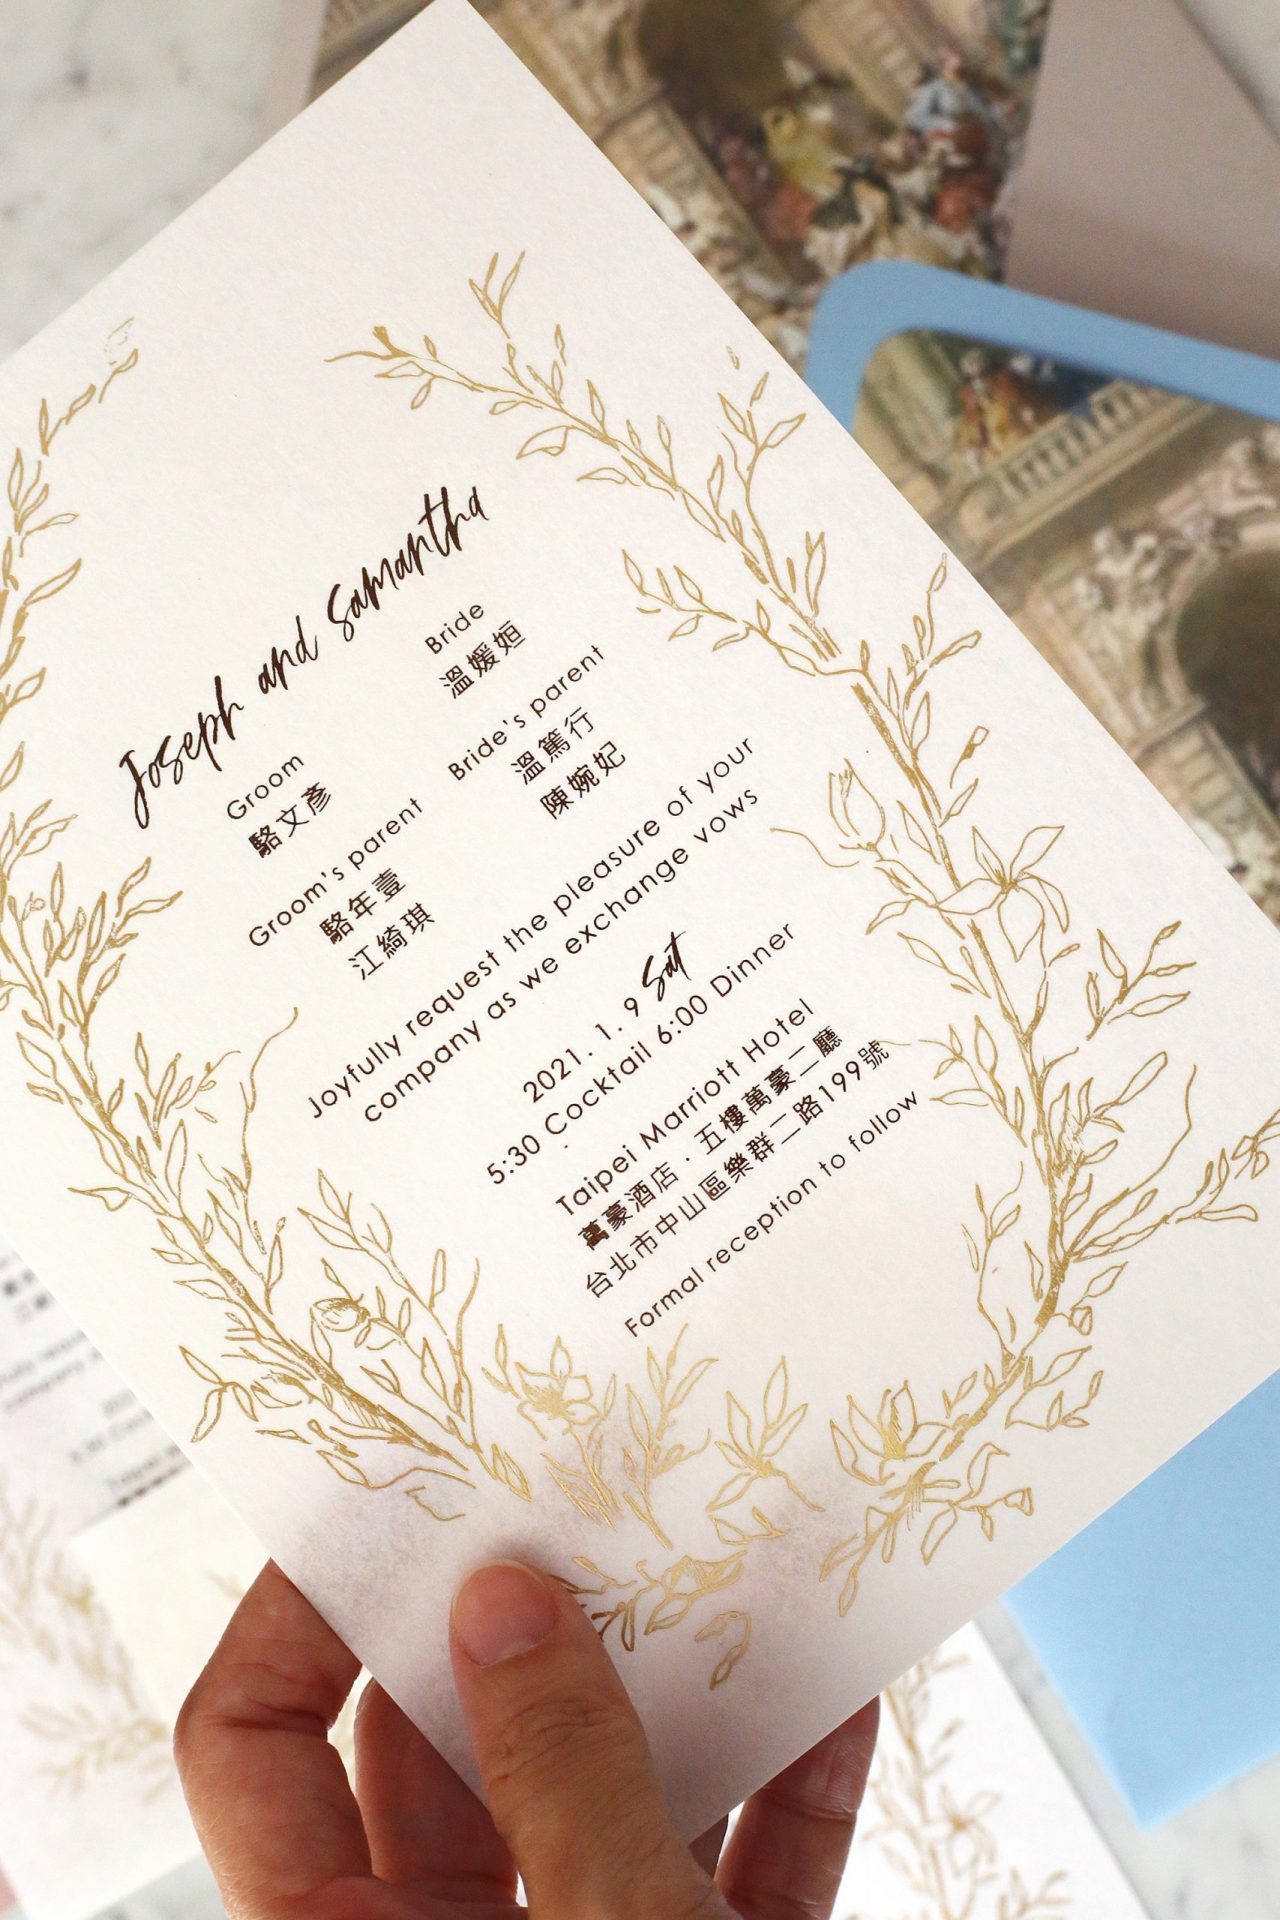 Joseph and Samantha
Groom
駱文彥
Groom's parent
駱年壹
江綺琪
Bride
溫媛姮
Bride's parent
溫篤行
陳婉妃
Joyfully request the pleasure of your
company as we exchange vows
2021. 1. 9 Sat
5:30 Cocktail 6:00 Dinner
Taipei Marriott Hotel
萬豪酒店．五樓萬豪二廳
台北市中山區樂群二路199號
Formal reception to follow